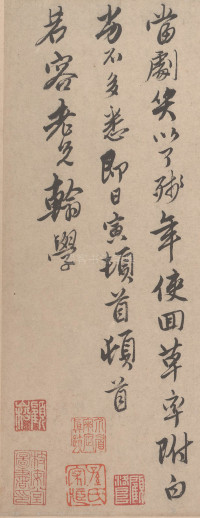 當劇笑以了殘年使回草率附白
當不多悉即日寅頓首頓首
若容老兄翰學